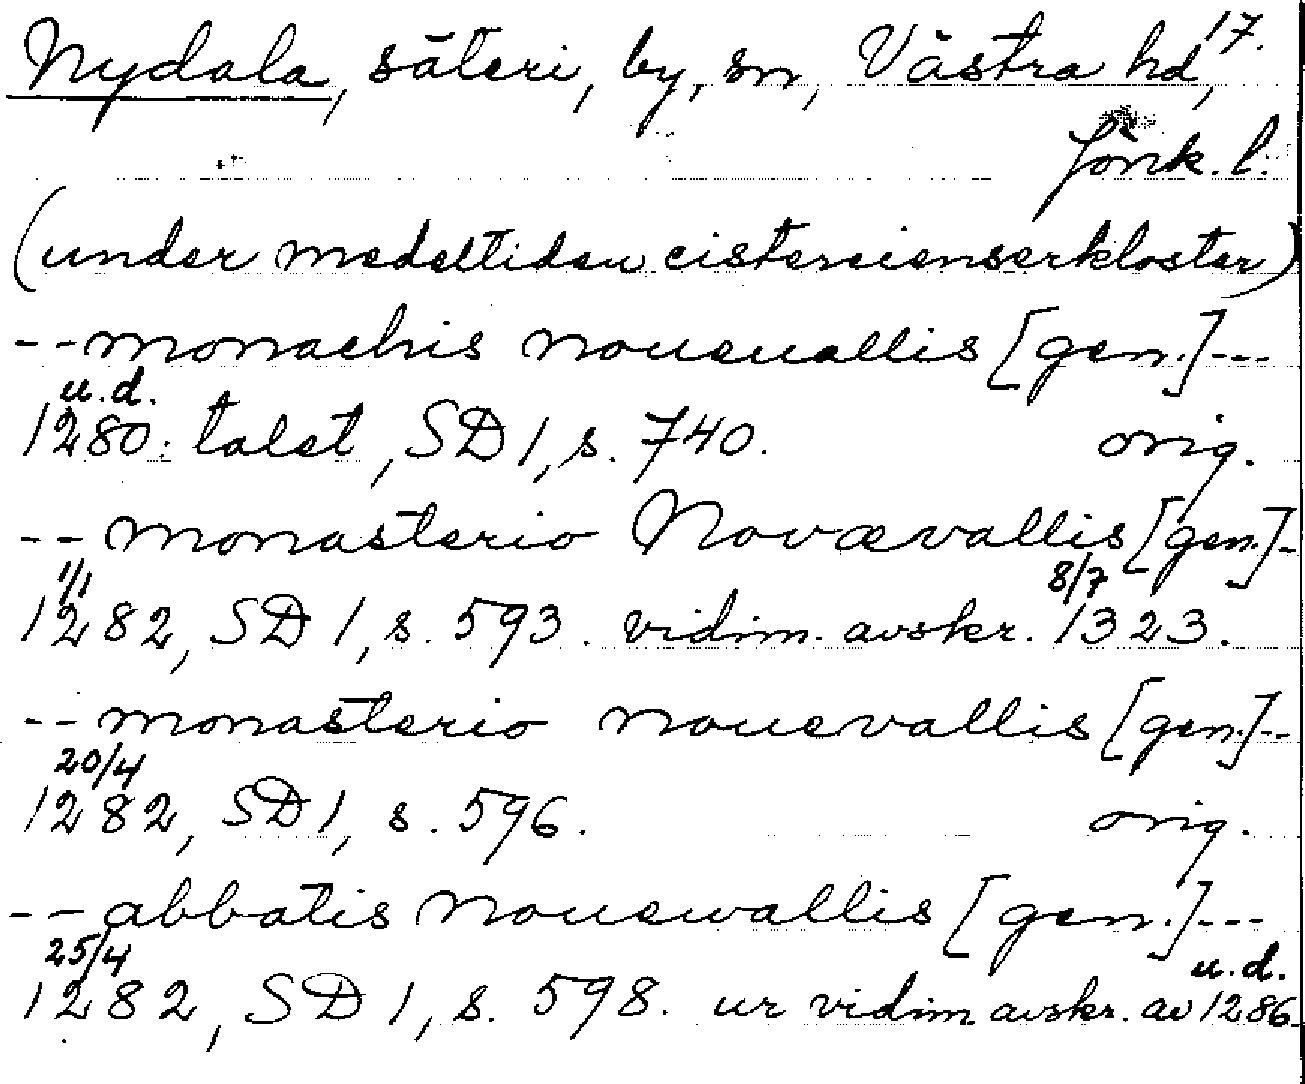 Nydala, säteri, by, sn, Västra hd, 17.
Jönk. l.
(under medeltiden cistercienserkloster)
-- monachis noueuallis [gen.] ---
u.d.
1280: talet, SD 1, s. 740. orig.
-- monasterio Novævallis [gen.] -
1/1 8/7
1282, SD 1, s. 593. vidim. avskr. 1323.
-- monasterio nouevallis [gen.] --
20/4
1282, SD 1, s. 596. orig.
-- abbatis Nouewallis [gen.] ---
25/4 u.d.
1282, SD 1, s. 598. ur vidim. avskr. av 1286